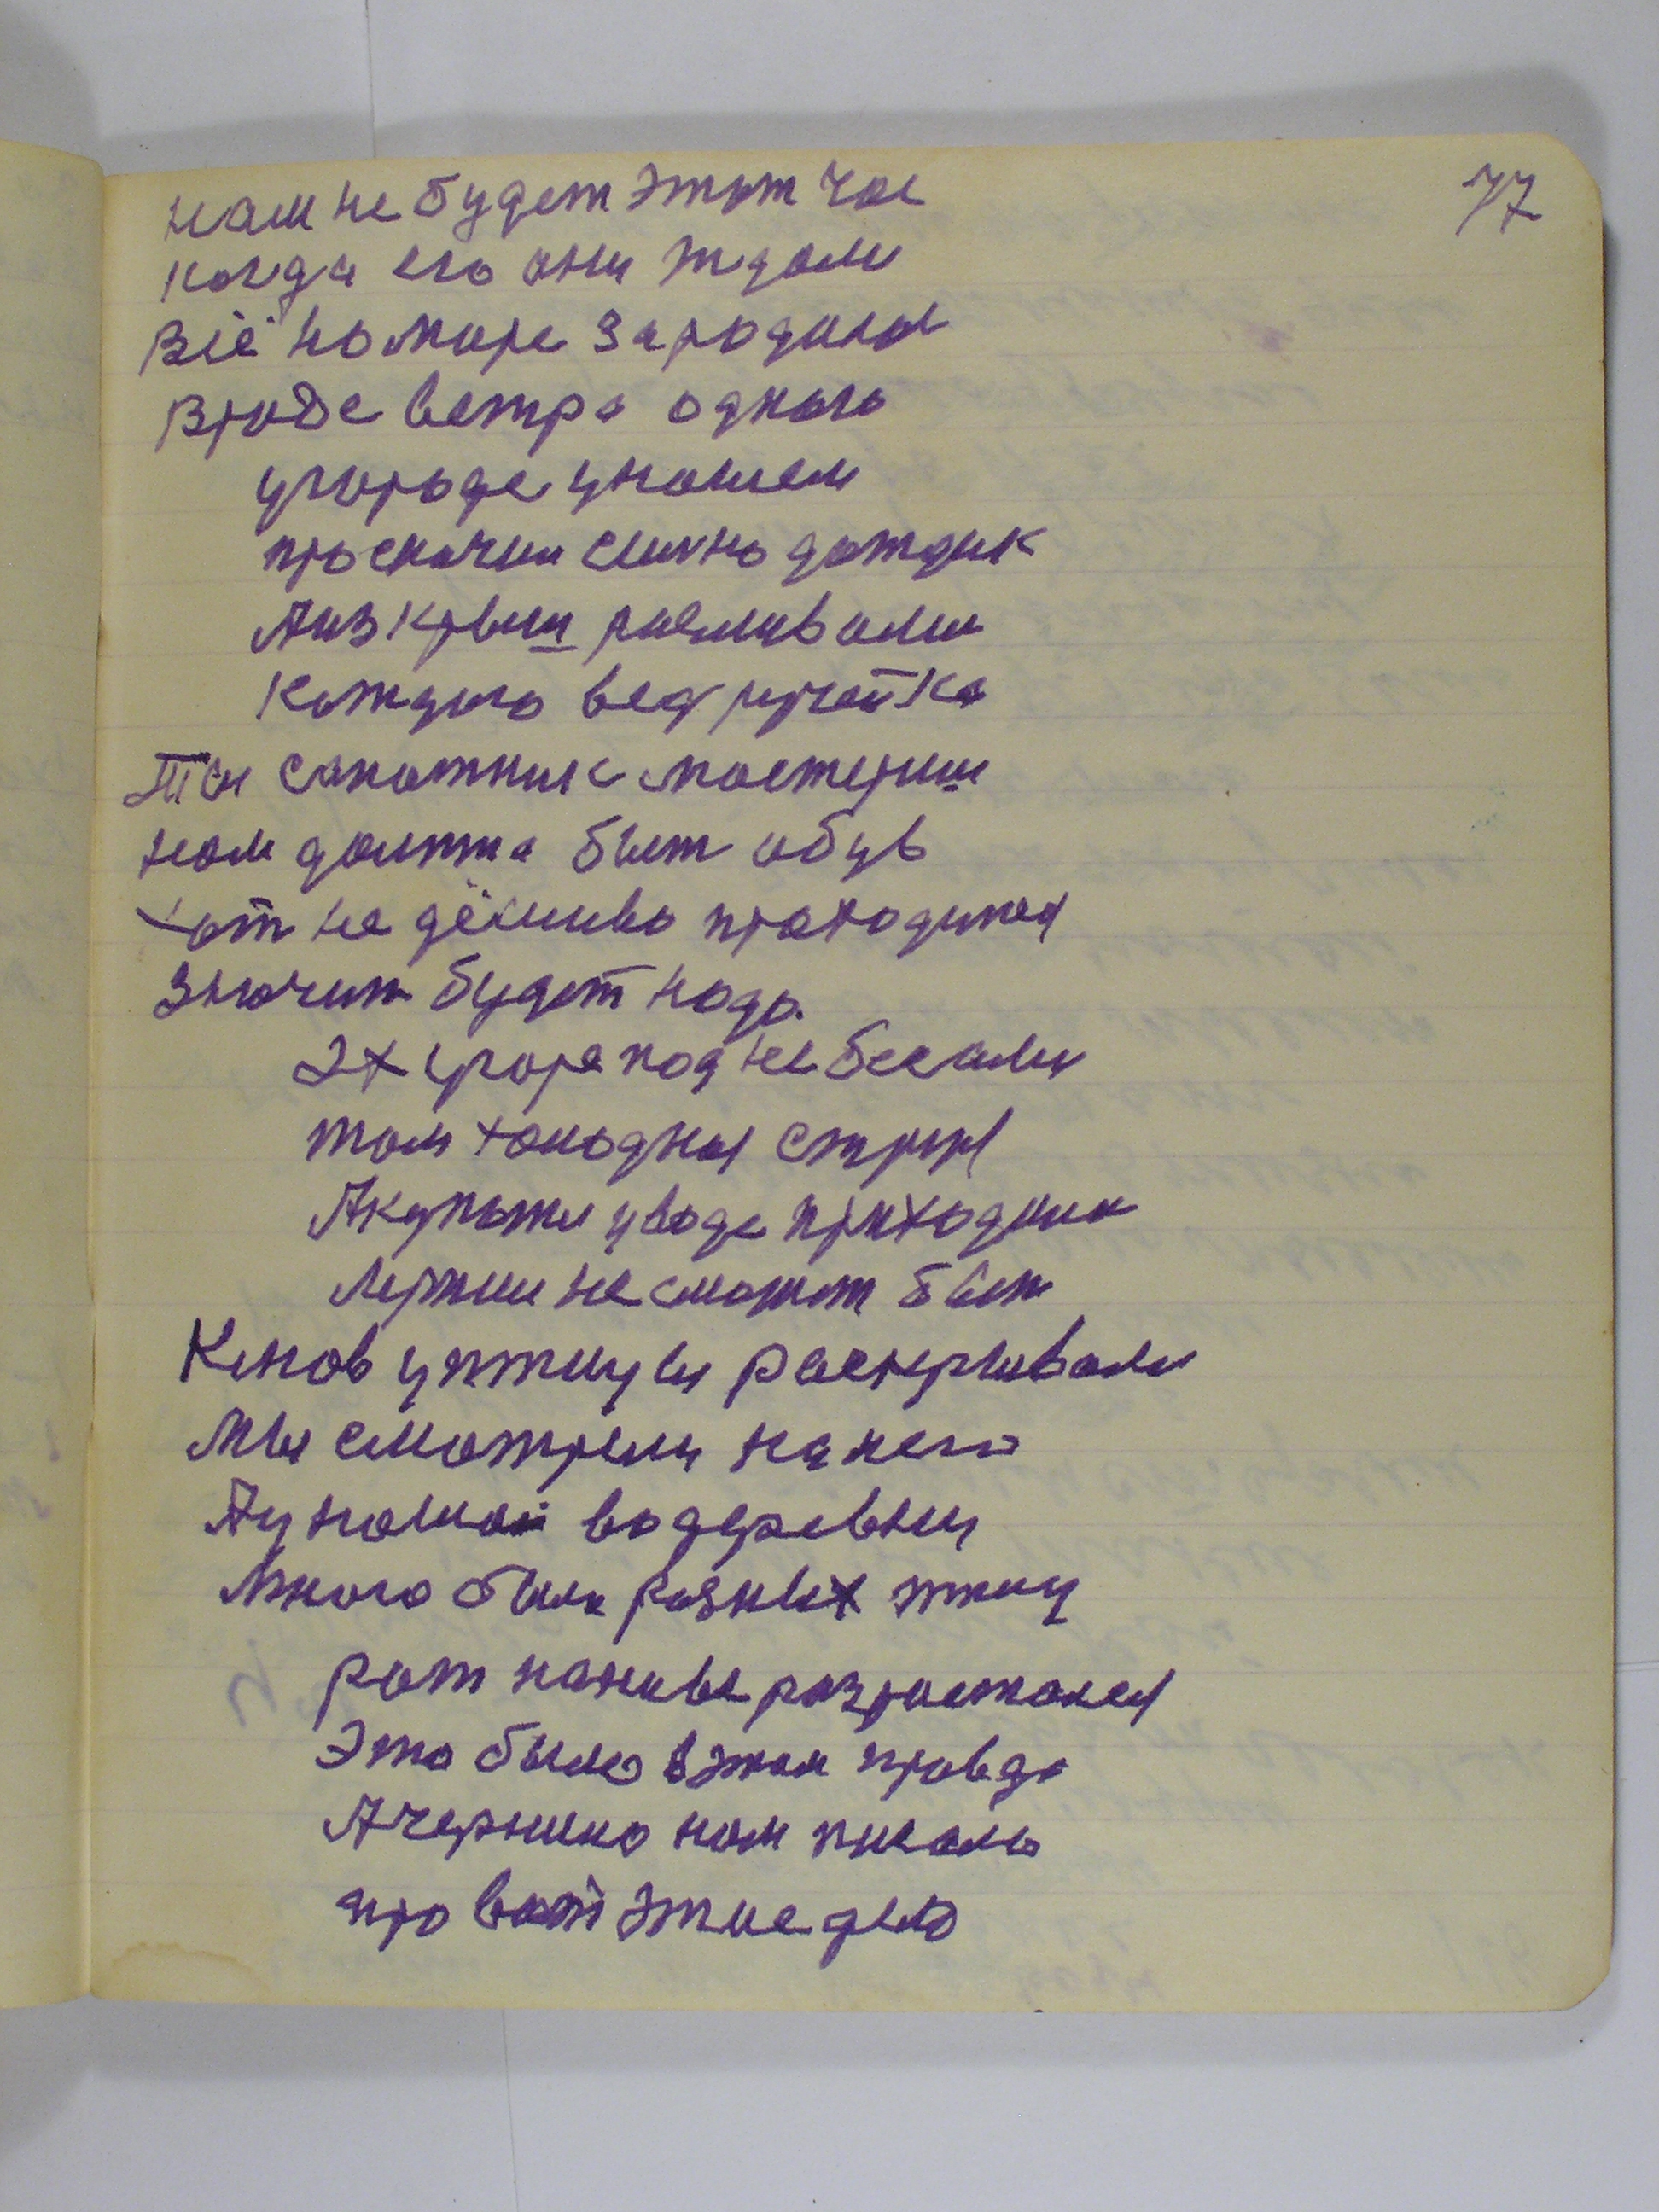 77
нам не будет этот час
когда его они ждали
Всё на море зародилос
Вроде ветра одного
у городе у нашем
проскочил сильно дождик
А из крыш разливали
Каждого вед ручейка
Ты сапожник мастериш
нам должна быт обув
хот не дёшиво проходится
Значит будет надо.
Эх у горе под небесами
там холодная
А купати у воде приходили
не сможет быт
Клюв у птицы раскрывали
Мы смотрели на него
А у нашой во деревни
Много было разных птиц
рот на
Это было в этом правда
А чернила нам писали
про вот этие дело